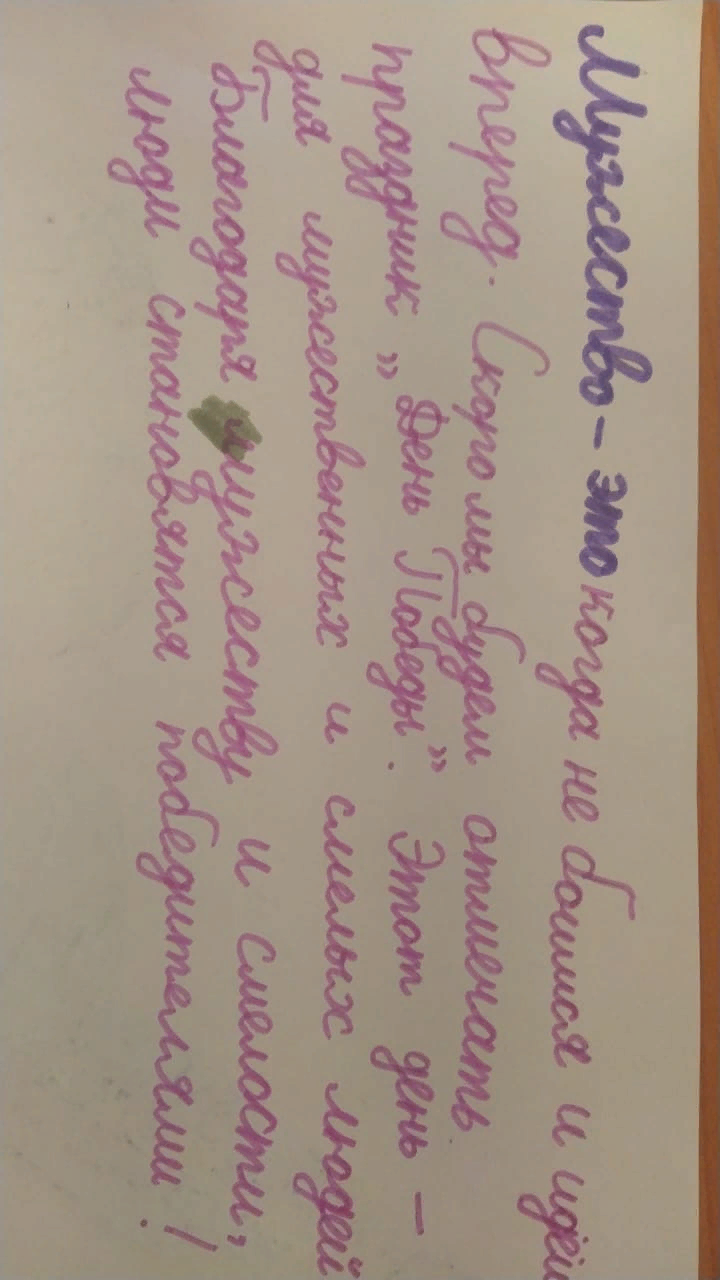 Мужество - это когда не боишься и идёшь
вперед. Скоро мы будем отмечать
праздник „День Победы”. Этот день -
для мужественных и смелых людей
Благодаря мужеству и смелости,
люди становятся победителями!